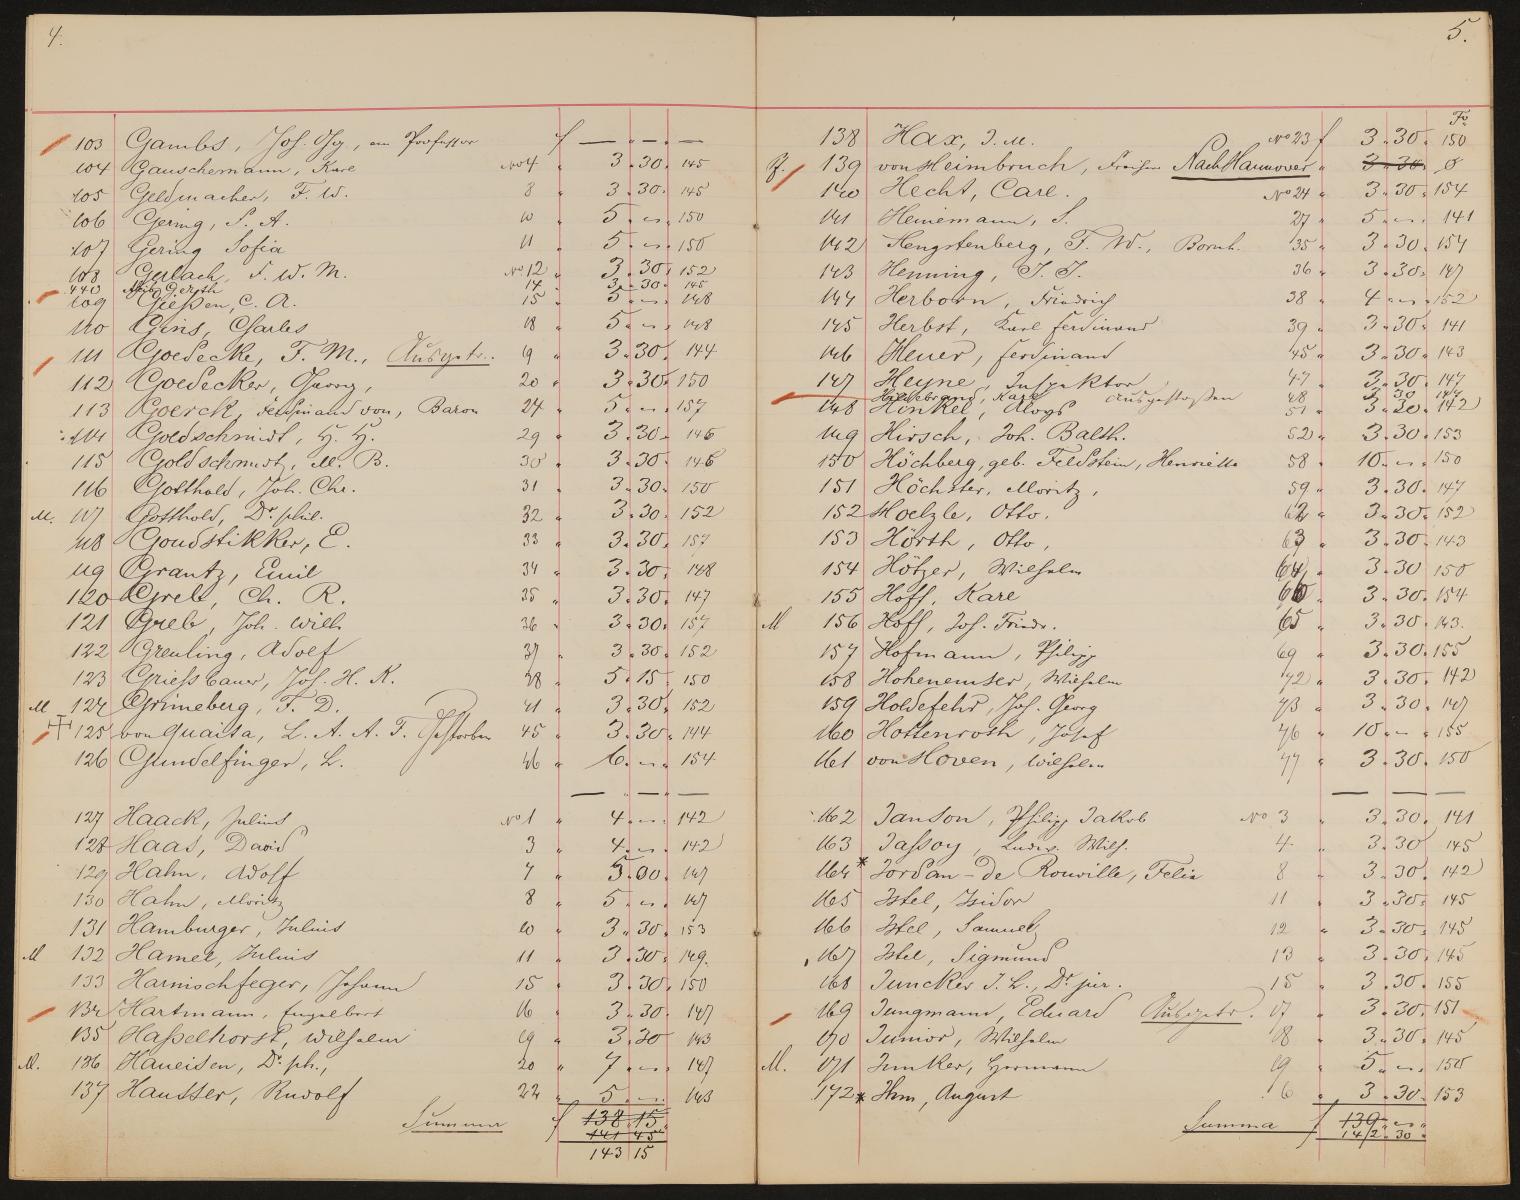 4.
103 Gambs, Joh. Gg, em Professor f — " — " —
104 Gauschemann, Karl No 4 " 3 " 30 " 145
105 Geldmacher, F. W. 8 " 3 " 30 " 145
106 Gering, S. A. 10 " 5 " — " 150
107 Gering Sofia 11 " 5 " — " 150
108 Gerlach, F. W. M. No 12 " 3 " 30 " 152
440 Gerth 14 " 3 " 30 " 145
109 Gießen, C. A. 15 " 5 " — " 148
110 Gins, Charles 18 " 5 " — " 148
111 Goedecke, F. M., Ausgetr. 19 " 3 " 30 " 144
112 Goedecker, Georg, 20 " 3 " 30 " 150
113 Goerck, Ferdinand von, Baron 24 " 5 " — " 157
114 Goldschmidt, H. H. 29 " 3 " 30 " 146
115 Goldschmidt, M. B. 30 " 3 " 30 " 146
116 Gotthold, Joh. Chr. 31 " 3 " 30 " 150
M. 117 Gotthold, Dr. phil. 32 " 3 " 30 " 152
118 Goudstikker, E. 33 " 3 " 30 " 157
119 Grantz, Emil 34 " 3 " 30 " 148
120 Greb, Ch. R. 35 " 3 " 30 " 147
121 Greb, Joh. Wilh 36 " 3 " 30 " 157
122 Greuling, Adolf 37 " 3 " 30 " 152
123 Griessbauer, Joh. H. K. 38 " 5 " 15 " 150
M 124 Grimeberg, F. D. 41 " 3 " 30 " 152
125 von Quaita, L. A. A. F. Gestorben 45 " 3 " 30 " 144
126 Gundelfinger, L. 46 " 6 " — " 154
— — —
127 Haack, Julius No 1 " 4 " — " 142
128 Haas, David 3 " 4 " — " 142
129 Hahn, Adolf 7 " 5 " 00 " 147
130 Hahn, Moritz 8 " 5 " — " 147
131 Hamburger, Julius 10 " 3 " 30 " 153
M 132 Hamel, Julius 11 " 3 " 30 " 149.
133 Harnischfeger, Johann 15 " 3 " 30 " 150
134 Hartmann, Engelbert 16 " 3 " 30 " 147
135 Haßelhorst, Wilhelm 19 " 3 " 30 143
M. 136 Haueisen, Dr. ph., 20 " 7 " — " 147
137 Hausser, Rudolf 22 " 5 " — " 143
Summa f 138 " 15 "
141 45
143 15
5.
Fo
138 Hax, J. M. No 23 f 3 " 30 " 150
139 von Heimbruch, Freiherr Nach Hannover " 3 " 30 " 0
140 Hecht, Carl. No 24 " 3 " 30 " 154
141 Heinemann, S. 27 " 5 " — " 141
142 Hengstenberg, F. W., Bornh. 35 " 3 " 30 " 154
143 Henning, J. J. 36 " 3 " 30 " 147
144 Herborn, Friedrich 38 " 4 " — " 152
145 Herbst, Karl Ferdinand 39 " 3 " 30 " 141
146 Heuer, Ferdinand 45 " 3 " 30 " 143
147 Heyne, Inspektor 47 " 3 " 30 " 147
Hildebrand, Karl Ausgestoßen 48 3 30 147
148 Hinkel, Aloys 51 " 3 " 30 " 142
149 Hirsch, Joh. Balth. 52 " 3 " 30 " 153
150 Höchberg, geb. Feldstein, Henriette 58 " 10 " — " 150
151 Höchster, Moritz, 59 " 3 " 30 " 147
152 Hoelzle, Otto. 62 " 3 " 30 " 152
153 Hörth, Otto, 63 " 3 " 30 " 143
154 Hötzer, Wilhelm 64 " 3 " 30 150
155 Hoff, Karl 66 " 3 " 30 " 154
M 156 Hoff, Joh. Friedr. 65 " 3 " 30 " 143.
157 Hofmann, Philipp 69 " 3 " 30 " 155
158 Hohenemser, Wilhelm 72 " 3 " 30 " 142
159 Holdefehr, Joh. Georg 73 " 3 " 30 " 147
160 Hottenroth, Josef 76 " 10 " — " 155
161 von Hoven, Wilhelm 77 " 3 " 30 " 150
— — —
162 Janson, Philipp Jakob No 3 " 3 " 30 " 141
163 Jassoy, Ludw. Wilh. 4 " 3 " 30 " 145
164 * Jordan - de Rouville, Felix 8 " 3 " 30 " 142
165 Istel, Isidor 11 " 3 " 30 " 145
166 Istel, Samuel, 12 " 3 " 30 " 145
167 Istel, Sigmund 13 " 3 " 30 " 145
168 Juncker J. L., Dr. jur. 15 " 3 " 30 " 155
169 Jungmann, Eduard Ausgetr. 17 " 3 " 30 " 151
170 Junior, Wilhelm 18 " 3 " 30 " 145
M. 171 Junker, Hermann 19 " 5 " — " 150
172 * Ihm, August 6 " 3 " 30 " 153
Summa f 139 " — "
142 " 30 "